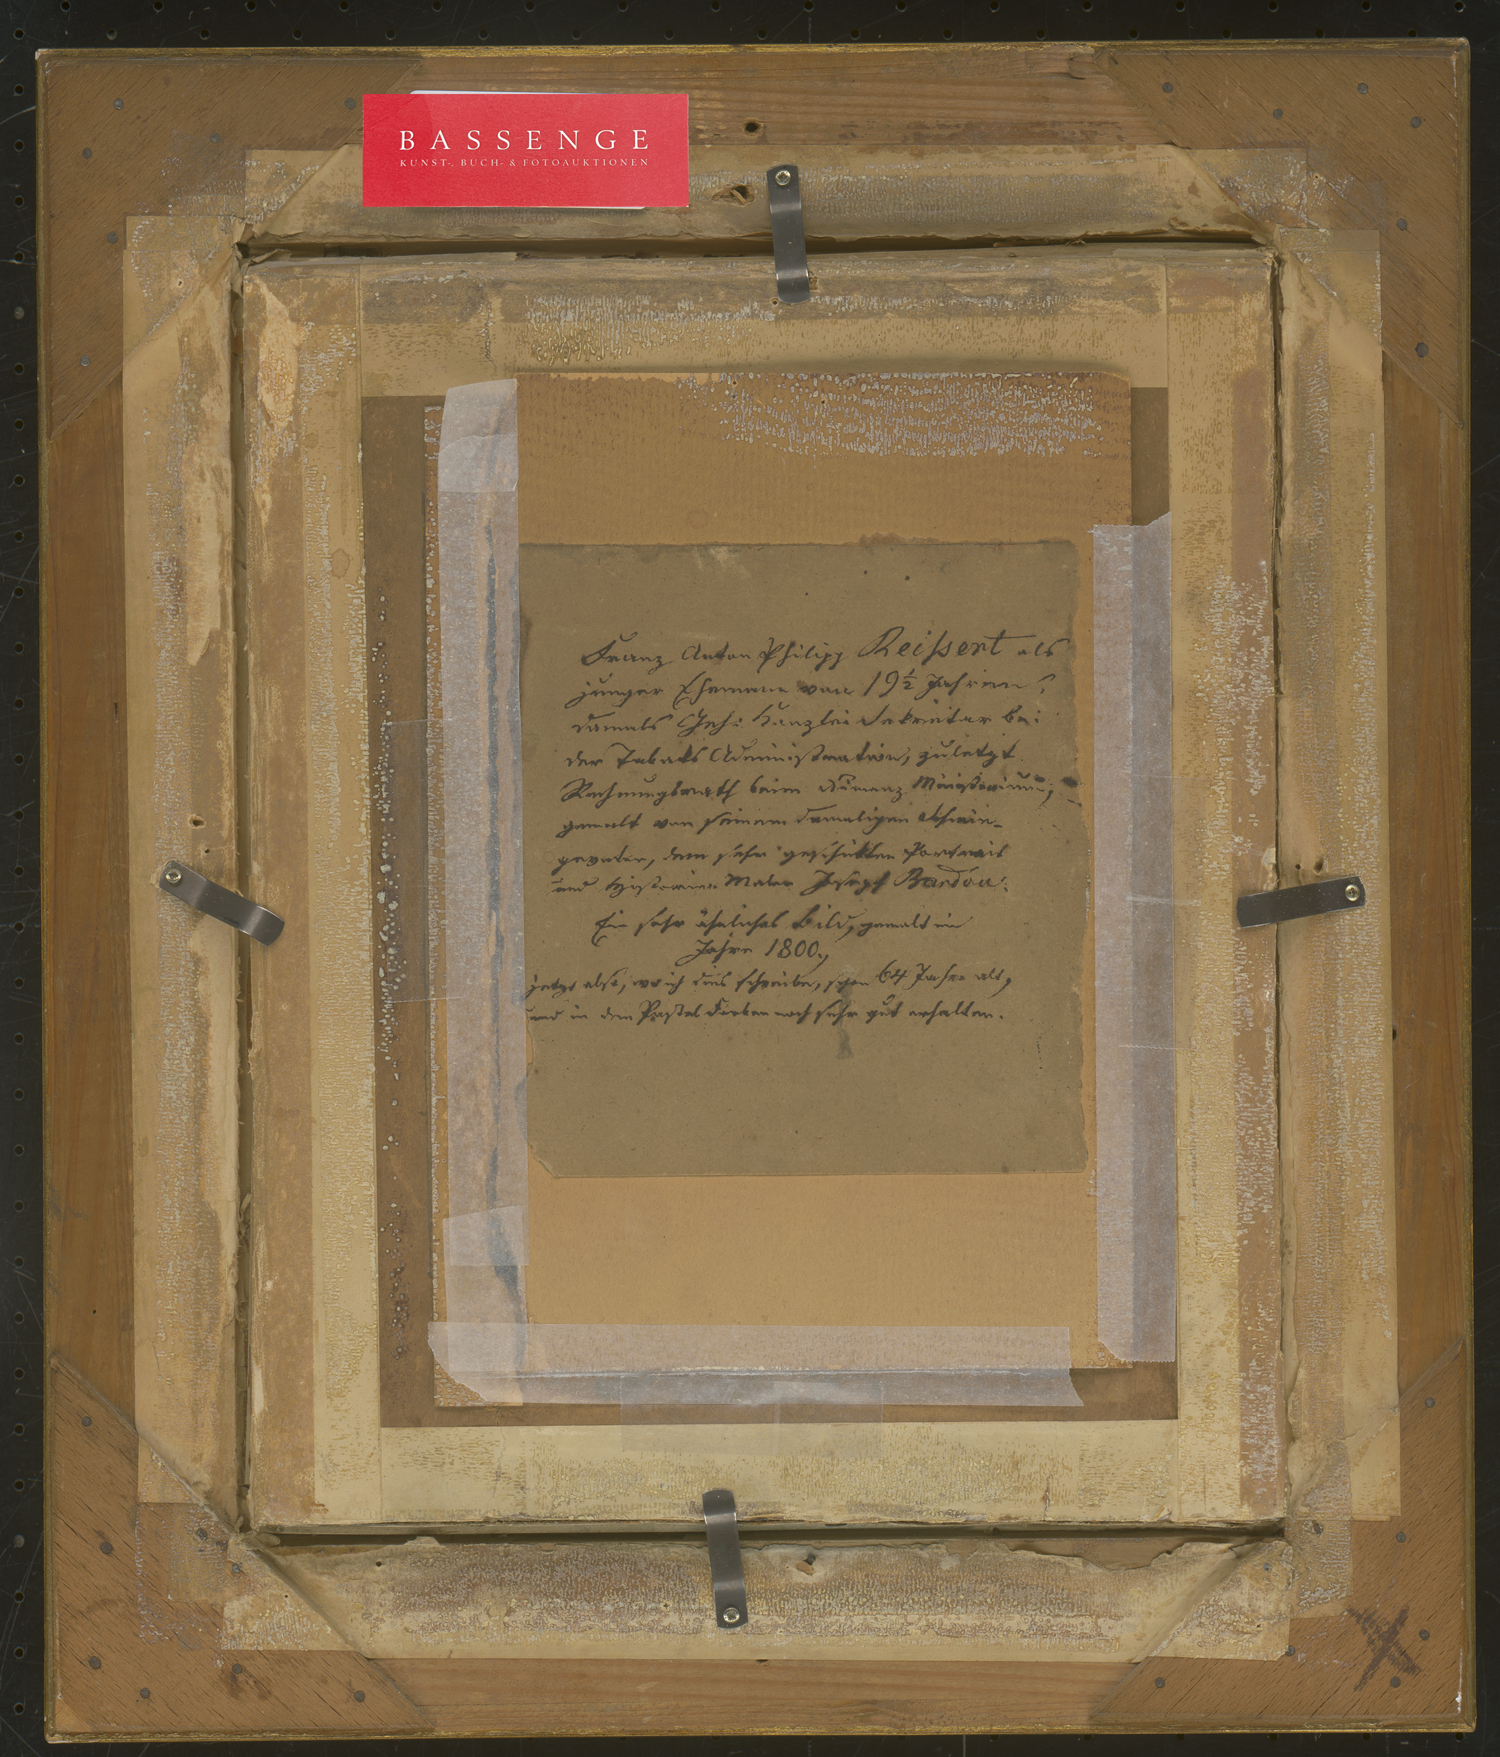 BASSENGE
KUNST-, BUCH- & FOTOAUKTIONEN
Franz Anton Philipp Reißert als
junger Ehemann von 19½ Jahren,
damals Geh: Kanzlei Sekretär bei
der Tabaks Administration, zuletzt
Rechnungsrath beim Finanz Ministerium,
gemalt von seinem damaligen Schwie-
gervater, dem sehr geschickten Portrait
und Historien Maler Joseph Bardou.
Ein sehr ähnliches Bild, gemalt im
Jahre 1800,
jetzt also, wo ich dies schreibe, schon 64 Jahre alt,
und in den Pastel Farben noch sehr gut erhalten.